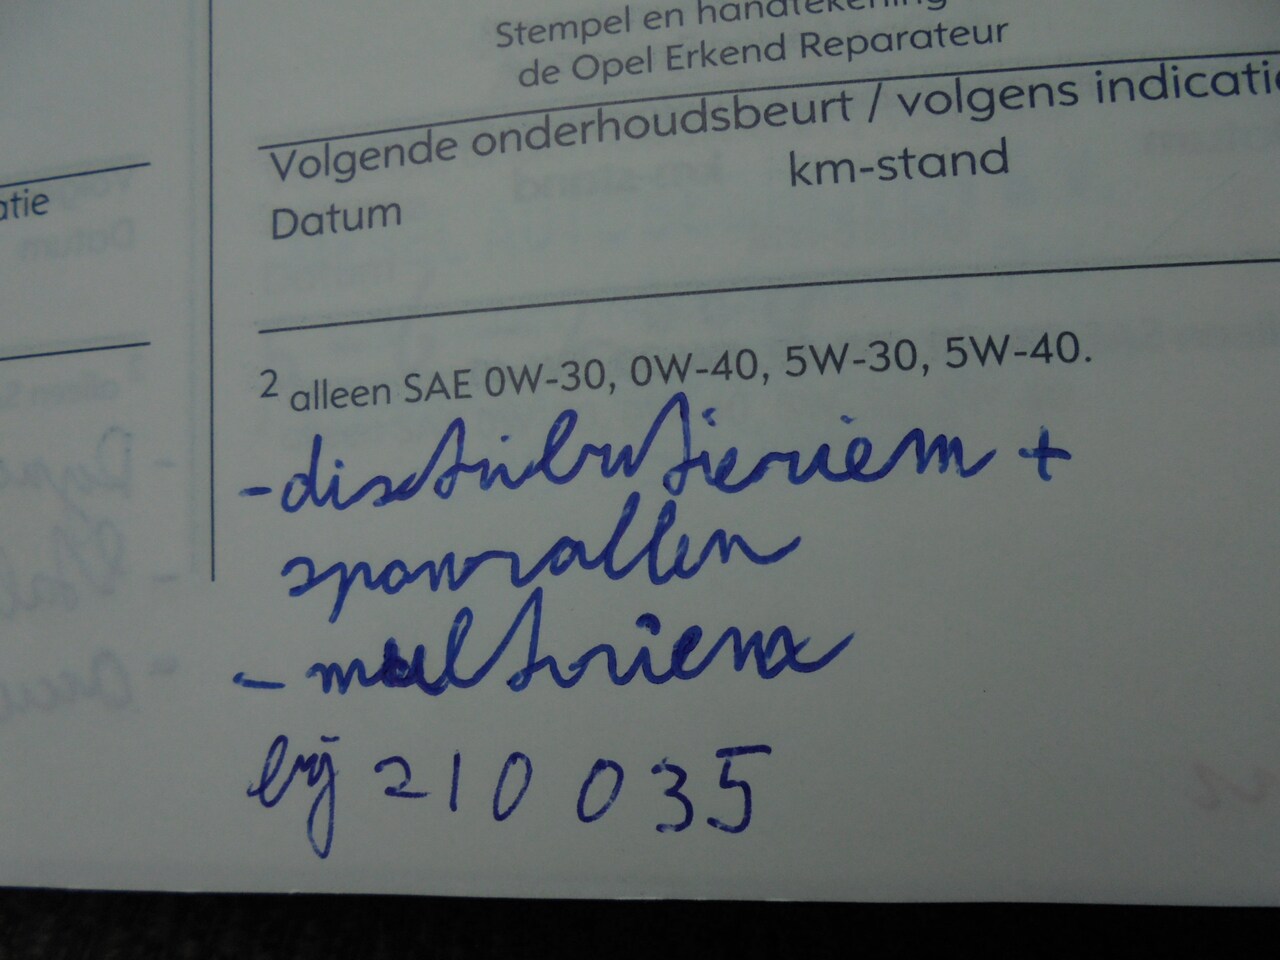 Stempel en handtekening
de Opel Erkend Reparateur
Volgende onderhoudsbeurt / volgens indicatie
km-stand
Datum
atie
2 alleen SAE 0W-30, 0W-40, 5W-30, 5W-40.
-distributieriem +
spanrollen
- multiriem
bij 210 035